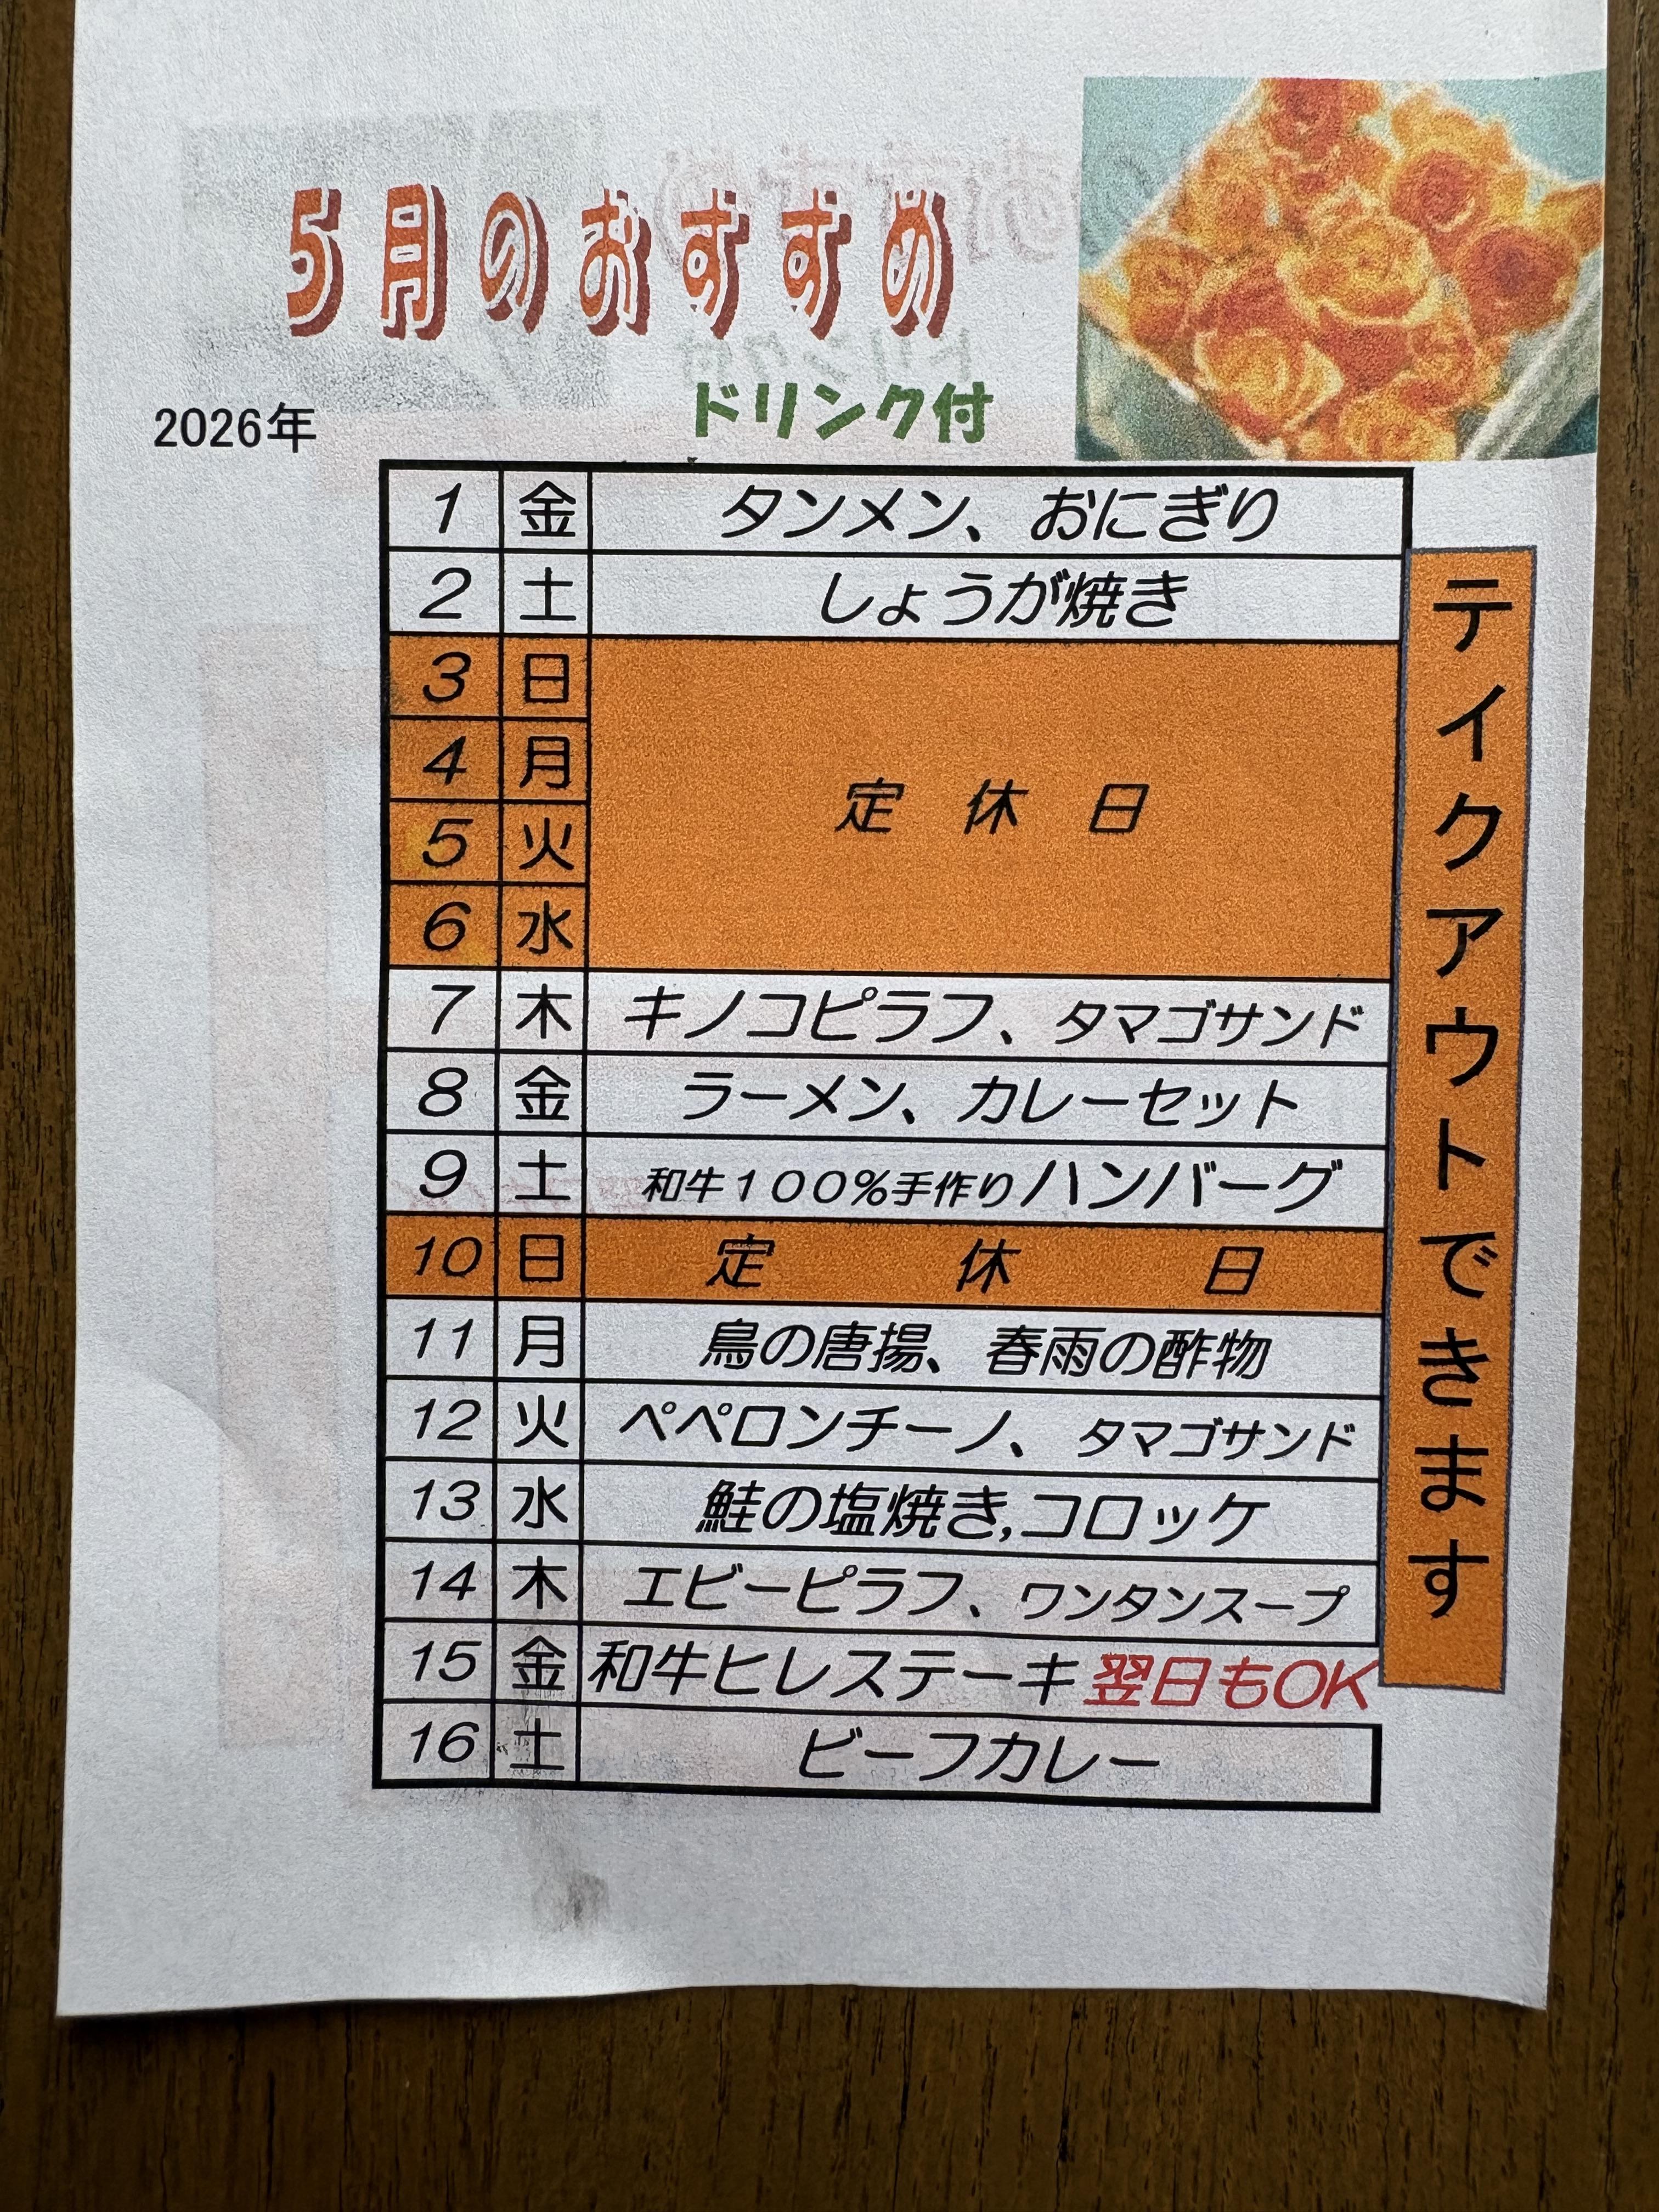 5月のおすすめ
ドリンク付
2026年
1 金 タンメン、おにぎり
2 土 しょうが焼き
3 日
4 月
定休日
5 火
6 水
7 木 キノコピラフ、タマゴサンド
8 金 ラーメン、カレーセット
9 土 和牛１００％手作りハンバーグ
10 日 定休日
11 月 鳥の唐揚、春雨の酢物
12 火 ペペロンチーノ、タマゴサンド
13 水 鮭の塩焼き,コロッケ
14 木 エビーピラフ、ワンタンスープ
15 金 和牛ヒレステーキ 翌日もOK
16 土 ビーフカレー
テイクアウトできます